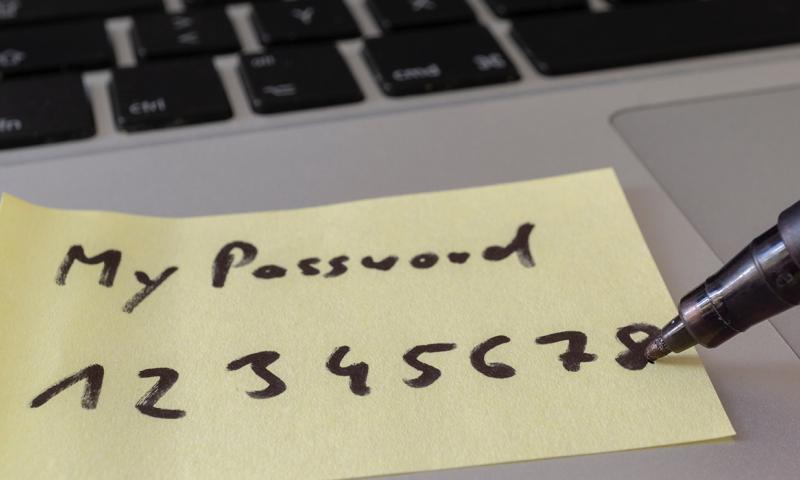 Y X
fn ctrl alt cmd ⌘
My Password
1 2 3 4 5 6 7 8